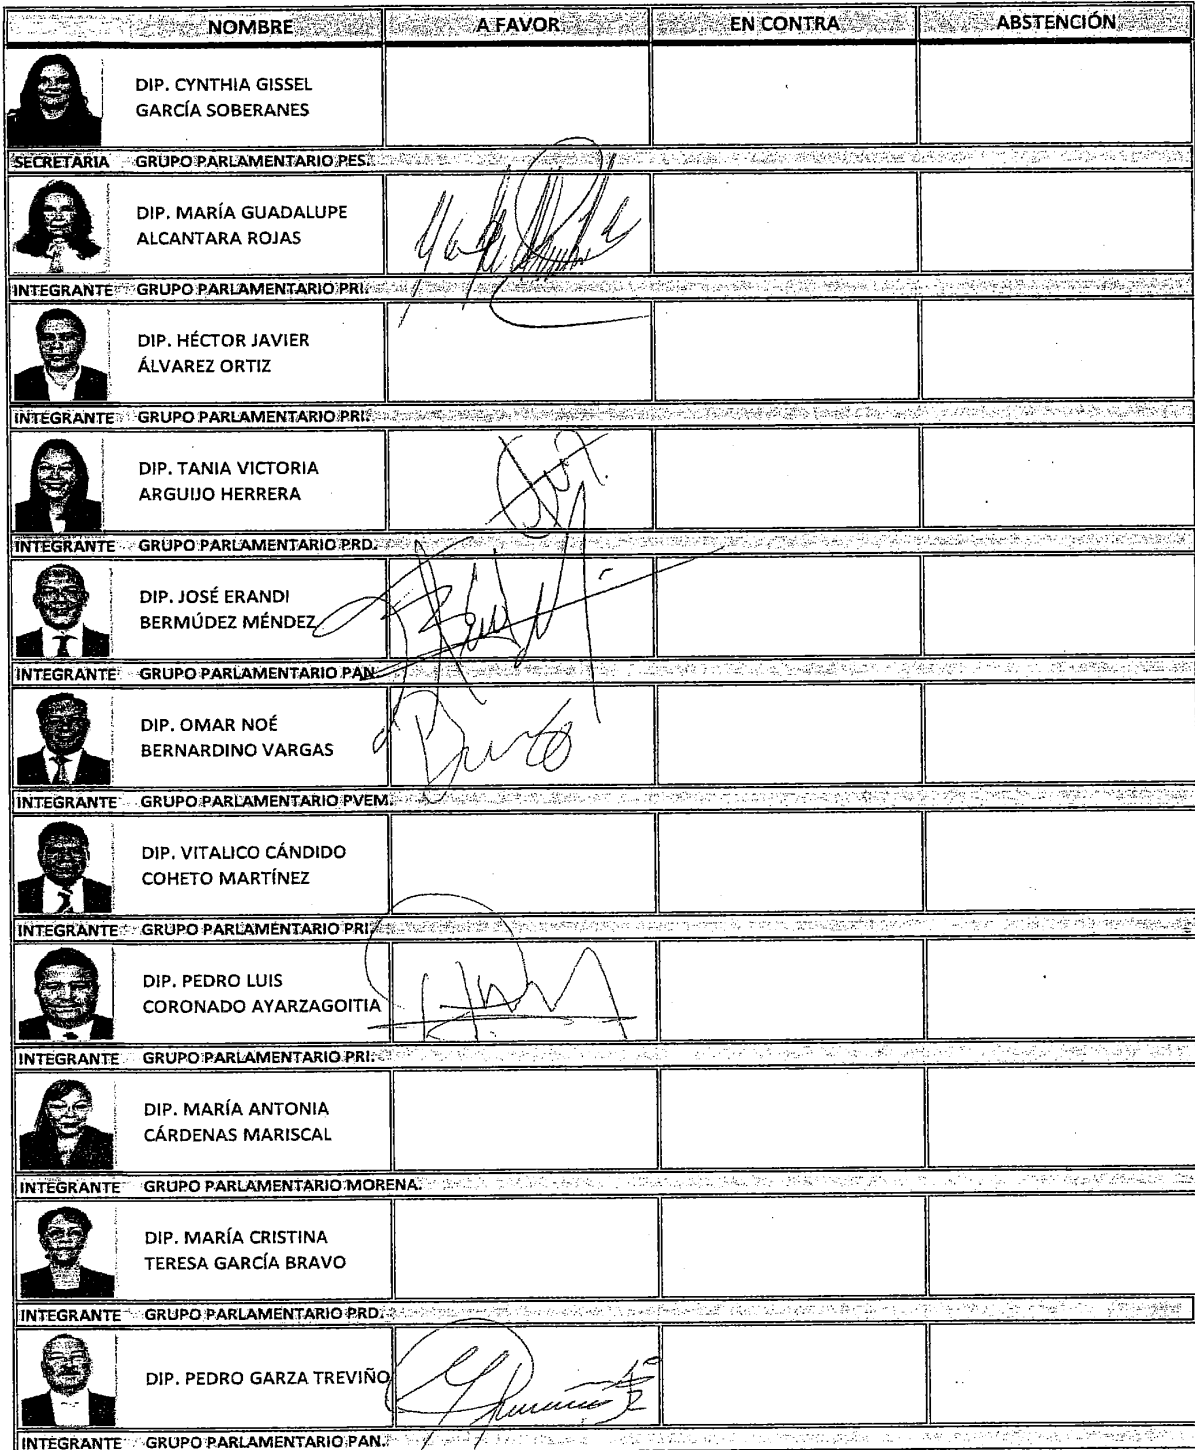 NOMBRE A FAVOR EN CONTRA ABSTENCIÓN
DIP. CYNTHIA GISSEL
GARCÍA SOBERANES
SECRETARIA GRUPO PARLAMENTARIO PES.
DIP. MARÍA GUADALUPE
ALCANTARA ROJAS
INTEGRANTE GRUPO PARLAMENTARIO PRI.
DIP. HÉCTOR JAVIER
ÁLVAREZ ORTIZ
INTEGRANTE GRUPO PARLAMENTARIO PRI.
DIP. TANIA VICTORIA
ARGUIJO HERRERA
INTEGRANTE GRUPO PARLAMENTARIO PRD.
DIP. JOSÉ ERANDI
BERMÚDEZ MÉNDEZ
INTEGRANTE GRUPO PARLAMENTARIO PAN
DIP. OMAR NOÉ
BERNARDINO VARGAS
INTEGRANTE GRUPO PARLAMENTARIO PVEM.
DIP. VITALICO CÁNDIDO
COHETO MARTÍNEZ
INTEGRANTE GRUPO PARLAMENTARIO PRI
DIP. PEDRO LUIS
CORONADO AYARZAGOITIA
INTEGRANTE GRUPO PARLAMENTARIO PRI.
DIP. MARÍA ANTONIA
CÁRDENAS MARISCAL
INTEGRANTE GRUPO PARLAMENTARIO MORENA.
DIP. MARÍA CRISTINA
TERESA GARCÍA BRAVO
INTEGRANTE GRUPO PARLAMENTARIO PRD.
DIP. PEDRO GARZA TREVIÑO
INTEGRANTE GRUPO PARLAMENTARIO PAN.